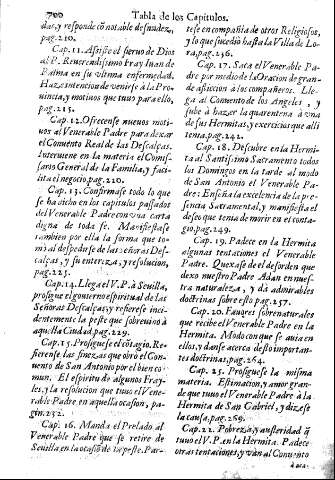 700
Tabla de los Capitulos.
das, y responde cõ notable desnudez,
pag.210.
Cap. 11. Assiste el siervo de Dios
al P. Reverendissimo Fray Iuan de
Palma en su vltima enfermedad.
Haze intencion de venirse à la Pro-
vincia, y motivos que tuvo para ello,
pag.215.
Cap. 12. Ofrecense nuevos moti-
vos al Venerable Padre para dexar
el Convento Real de las Descalças.
Interviene en la materia el Comis-
sario General de la Familia, y faci-
lita el negocio, pag.220.
Cap. 13. Confirmase todo lo que
se ha dicho en los capitulos passados
del Venerable Padre con vna carta
digna de toda fe. Manifiestase
tambien por ella la forma que to-
mò al despedirse de las señoras Des-
calças, y su entereza, y resolucion,
pag.225.
Cap. 14. Llega el V.P. à Sevilla,
prosigue el govierno espiritual de las
Señoras Descalças, y refierese inci-
dentemente la peste que sobrevino à
aquella Ciudad, pag.229.
Cap. 15. Prosigue el cõtagio. Re-
fierense las finezas que obrò el Con-
vento de San Antonio por el bien co-
mun. El espiritu de algunos Fray-
les, y la resolucion que tuvo el Vene-
rable Padre en aquella ocasion, pa-
gin.232.
Cap. 16. Manda el Prelado al
Venerable Padre que se retire de
Sevilla en la ocasiõ de la peste. Par-
tese en compañia de otros Religiosos,
y lo que sucediò hasta la Villa de Lo-
ra, pag.236.
Cap. 17. Saca el Venerable Pa-
dre por medio de la Oracion de gran-
de afliccion à los compañeros. Lle-
ga al Convento de los Angeles, y
sube à hazer la quarentena à vna
de sus Hermitas, y exercicios que allí
tenia, pag.242.
Cap. 18. Descubre en la Hermi-
ta al Santissimo Sacramento todos
los Domingos en la tarde al modo
de San Antonio el Venerable Pa-
dre: Enseña la excelencia de la pre-
sencia Sacramental, y manifiesta el
deseo que tenia de morir en el conta-
gio, pag.249.
Cap. 19. Padece en la Hermita
algunas tentaciones el Venerable
Padre. Quexase de el desorden que
dexò nuestro Padre Adan en nues-
tra naturaleza, y dà admirables
doctrinas sobre esto, pag.257.
Cap. 20. Favores sobrenaturales
que recibe el Venerable Padre en la
Hermita. Modo con que se avia en
ellos, y danse acerca desto importan-
tes doctrinas, pag.264.
Cap. 21. Prosiguese la misma
materia. Estimacion, y amor gran-
de que tuvo el Venerable Padre à la
Hermita de San Gabriel, y dizese
la causa, pag.269.
Cap. 22. Pobreza, y austeridad q̃
tuvo el V.P. en la Hermita. Padece
otras tentaciones, y vàn al Convento